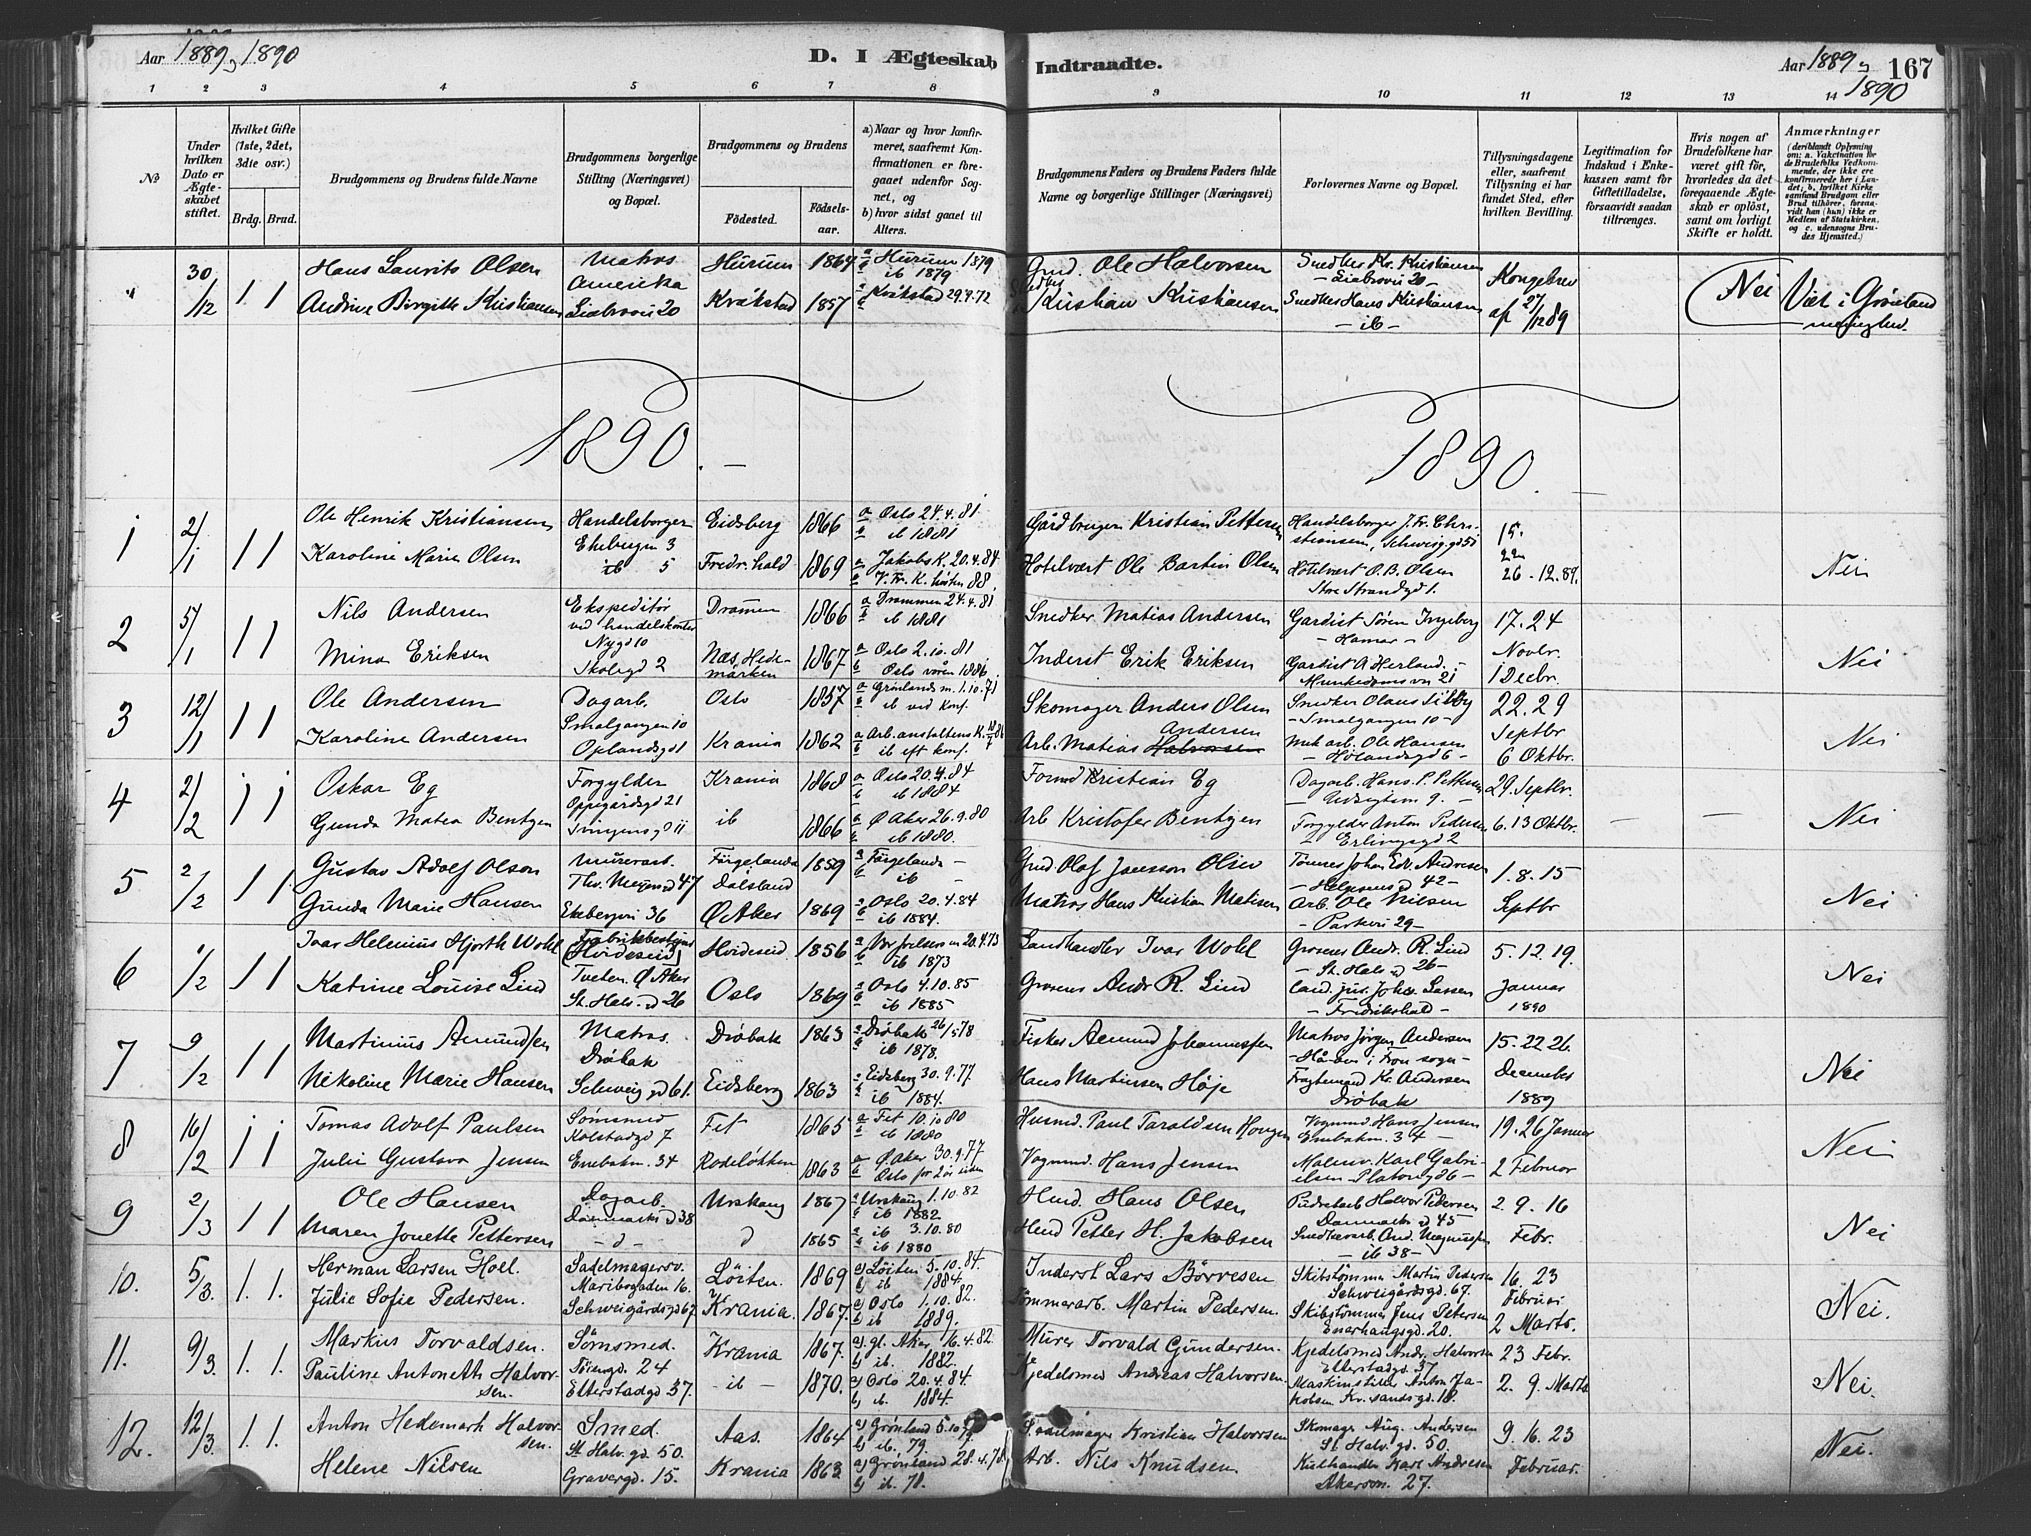 Aar 1889 og 1890
D. I Ægteskab Indtraadte.
Aar 1889 og 1890
167
1 2 3 4 5 6 7 8 9 10 11 12 13 14
No
Under hvilken Dato er Ægteskabet stiftet.
Hvilket Gifte (1ste, 2det, 3die osv.)
Brdg. Brud.
Brudgommens og Brudens fulde Navne
Brudgommens borgerlige Stilling (Næringsvei) og Bopæl.
Brudgommens og Brudens
Födested.
Födselsaar.
a) Naar og hvor konfirmeret, saafremt Konfirmationen er foregaaet udenfor Sognet, og
b) hvor sidst gaaet til Alters.
Brudgommens Faders og Brudens Faders fulde Navne og borgerlige Stillinger (Næringsvei)
Forlovernes Navne og Bopæl.
Tillysningsdagene eller, saafremt Tillysning ei har fundet Sted, efter hvilken Bevilling.
Legitimation for Indskud i Enkekassen samt for Giftetilladelse, forsaavidt saadan tiltrænges.
Hvis nogen af Brudefolkene har været gift för, hvorledes da det foregaaende Ægteskab er oplöst, samt om lovligt Skifte er holdt.
Anmærkninger (deriblandt Oplysning om: a. Vakcination for de Brudefolks Vedkommende, der ikke ere konfirmerede her i Landet; b. hvilket Kirkesamfund Brudgom eller Brud tilhörer, forsaavidt han (hun) ikke er Medlem af Statskirken, og c. udensogns Brudes Hjemsted.)
" 30/12 1 1 Hans Laurits Olsen Matros Amerika Hurum 1864 a Hurum 1879 b ib 1879 Grd. Ole Halvorsen Snedker Kr. Kristiansen Liabrovei 20 Kongebrev af 27/12 89 Nei Viet i Grønland menighed.
Andrine Birgitte Kristiansen Liabrovei 20 Kråkstad 1857 a Kråkstad 29.9.72 Kristian Kristiansen Snedker Hans Kristiansen – ib –
1890. –
1890. –
1 2/1 1 1 Ole Henrik Kristiansen Handelsborger Ekebergen 3 Eidsberg 1866 a Oslo 24.4.81 b ib 1881 Gårdbruger Kristian Pettersen Handelsborger J. Fr. Christiansen, Schweig.gd 51 15. 22
Karoline Marie Olsen ib 5 Fredr.hald 1869 a Jakobs K. 20.4.84 b J. Fr. K. høsten 88 Hotelvært Ole Bartin Olsen Hotelvært O. B. Olsen Store Strandgd 1. 26.12.89. Nei
2 5/1 1 1 Nils Andersen Ekspeditør ved handelskontor Nygd 10 Dramen 1866 a Drammen 24.4.81 b ib 1881 Snedker Matias Andersen Gardist Søren Ingeberg – Hamar – 17. 24 Novbr.
Mina Eriksen Skolegd 2 Næs, Hedemarken 1867 a Oslo 2.10.81 b Oslo våren 1886. Inderst Erik Eriksen Gardist A Herland. – Munkedamsvei 21 1 Decbr. Nei
3 12/1 1 1 Ole Andersen Dagarb. Smalgangen 10 Oslo 1857 a Grønlands m. 1.10.71 b ib ved konf. Skomager Anders Olsen Snedker Olaus – Smalgangen 10 – 22. 29 Septbr
Karoline Andersen Oplandsgd 1 Krania 1862 a Arb. anstaltens K. b ib eft konf. Arb. Matias Halvorsen Andersen Mek arb. Ole Hansen – Hølandsgd 6 – 6 Oktbr. Nei
4 2/2 1 1 Oskar Eg Forgylder Oppegårdsgd 21 Krania 1868 a Oslo 20.4.84 b ib 1884 Formd Kristian Eg Dagarb. Hans P. Pettersen – Udsigtem 9. – 29. Septbr.
Gunda Matea Bentzen Tvingensgd 11 ib 1866 a Ø Aker 26.9.80 b ib 1880. Arb Kristofer Bentzen Forgylder Anton Pedersen Erlingsgd 2 6. 13 Oktbr. – – Nei
5 2/2 1 1 Gustav Adolf Olson Murerarb. Thv. Meyers gd 47 Färgelanda Dalsland 1859 a Färgelanda – b ib – Grd Olof Jansson Olsen Tømmer Johan Edv. Andresen – Helgesens gd 42 – 1. 8. 15
Gunda Marie Hansen Ekebergvei 36 Ø Aker 1869 a Oslo 20.4.84 b ib 1884. Matros Hans Kristian Matisen Arb. Ole Nielsen – Parkvei 29 – Septbr Nei
6 1/2 1 1 Ivar Helenius Hjorth Wohl Fabrikbestyrer (Hvideseid) Tveten Ø Aker Hvideseid 1856 a Vor frelsers m 20.4.73 b ib 1873 Landhandler Ivar Wohl Grosers Andr. R. Lind – St. Halv gd 26 – 5. 12. 19.
Katrine Louise Lind St. Halv. gd 26 Oslo 1869 a Oslo 4.10.85 b ib 1885 Groserer Andr R. Lind Cand. jur. Johan Larsen – Fredrikshald – Januar 1890 Nei
7 9/2 1 1 Martinius Amundsen Matros. Drøbak Drøbak 1863 a Drøbak 26/5 78 b ib 1878. Fisker Amund Johannessen Matros Jørgen Andersen 15. 22 26.
Nikoline Marie Hansen Schweig gd 61. Eidsberg 1863 a Eidsberg 30.9.77 b ib 1884. Hans Martinsen Høje Fragtemand Kr. Andersen Drøbak December 1889 Nei
8 16/2 1 1 Tomas Adolf Paulsen Sømmand Kolstadgd 7 Fet 1865 a Fet 10.10 80 b ib 1880 Husmd. Paul Taraldsen Vognmd Hans Jensen Enebakv. 34 – 19. 26 Januar
Julie Gustava Jensen Enebakv. 34 Rodeløkken 1863 a Ø Aker 30.9.77 b Oslo for 2 år siden Vognmd. Hans Jensen Malersv. Karl Gabrielsen – Platousgd 6 – 2 Februar Nei
9 2/3 1 1 Ole Hansen Dagarb. Danmarks gd 38 Urskoug 1867 a Urskoug 1.10.82 b ib 1882 Hmd. Hans Olsen Pudsebarb Halvor Pedersen Danmarks gd 45 2. 9. 16
Maren Jonette Pettersen – d – d 1865 a ib 3.10.80 b ib 1880 Hmd Petter H. Jakobsen Snedkerarb. And. Magnussen – ib 38 – Febr. Nei
10. 5/3. 1. 1. Herman Larsen Hoel. Sadelmagersv. Maribogaden 16. Löiten. 1869 a) Löiten 5.10.84. b) ib 1884. Inderst Lars Börresen Skibstömmer. Martin Pedersen Schweigårdsgd. 67. 16. 23 Februar
Julie Sofie Pedersen. Schweigårdsgd 67. Krania. 1867. a) Oslo 1.10.82. b) ib 1889. Tömmerarb. Martin Pedersen. Skibstömmer Jens Petersen Enerhaugsgd. 20. 2 Marts. Nei.
11. 9/3. 1. 1. Markus Torvaldsen. Sömsmed. Töiengd. 24 Krania 1867. a) gl. Aker 16.4.82. b) ib. 1882. Murer Torvald Gundersen. Kjedelsmed Andr. Halvorsen Etterstadgd. 37 23 Febr.
Pauline Antonette Halvorsen. Etterstadgd 37. – ib – 1870. a) Oslo 20.4.84. b) ib. 1884. Kjedelsmed Andreas Halvorsen. Maskinstiller Anton Jakobsen Kr.sandsgd. 18. 2. 9. Marts Nei.
12. 12/3. 1. 1. Anton Hedemark Halvorsen. Smed. St. Halv. gd. 50. Aas. 1864 a) Grønland 5.10.79. b) ib. 79. Sadelmager Kristian Halvorsen Skomager Aug. Andersen St Halv. gd. 50. 9. 16. 23
Helene Nilsen Gravergd. 15. Krania 1863. a) Grønland 28.4.78. b) ib. 78. Arb. Nils Knudsen. Kulhandler Karl Andresen Akersvn. 27. Februar. Nei.